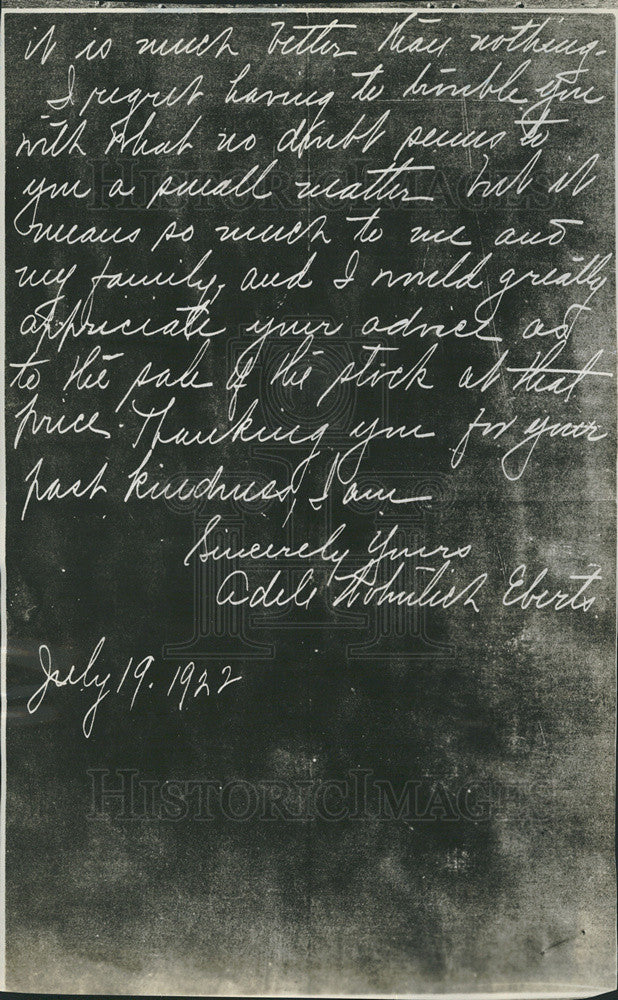 it is much better than nothing.
I regret having to trouble you
with what no doubt seems to
you a small matter but it
means so much to me and
my family, and I would greatly
appreciate your advice as
to the sale of the stock at that
price. Thanking you for your
past kindness, I am
Sincerely Yours
Adele Eberts
July 19. 1922
HISTORIC IMAGES
HISTORIC IMAGES